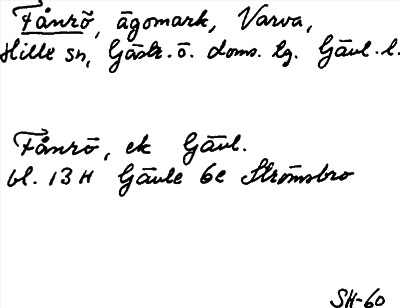 Fånrö, ägomark, Varva,
Hille sn, Gästr. ö. doms. hg. Gävl. l.
Fånrö, ek Gävl.
bl. 13 H Gävle 6e Strömsbro
SH-60